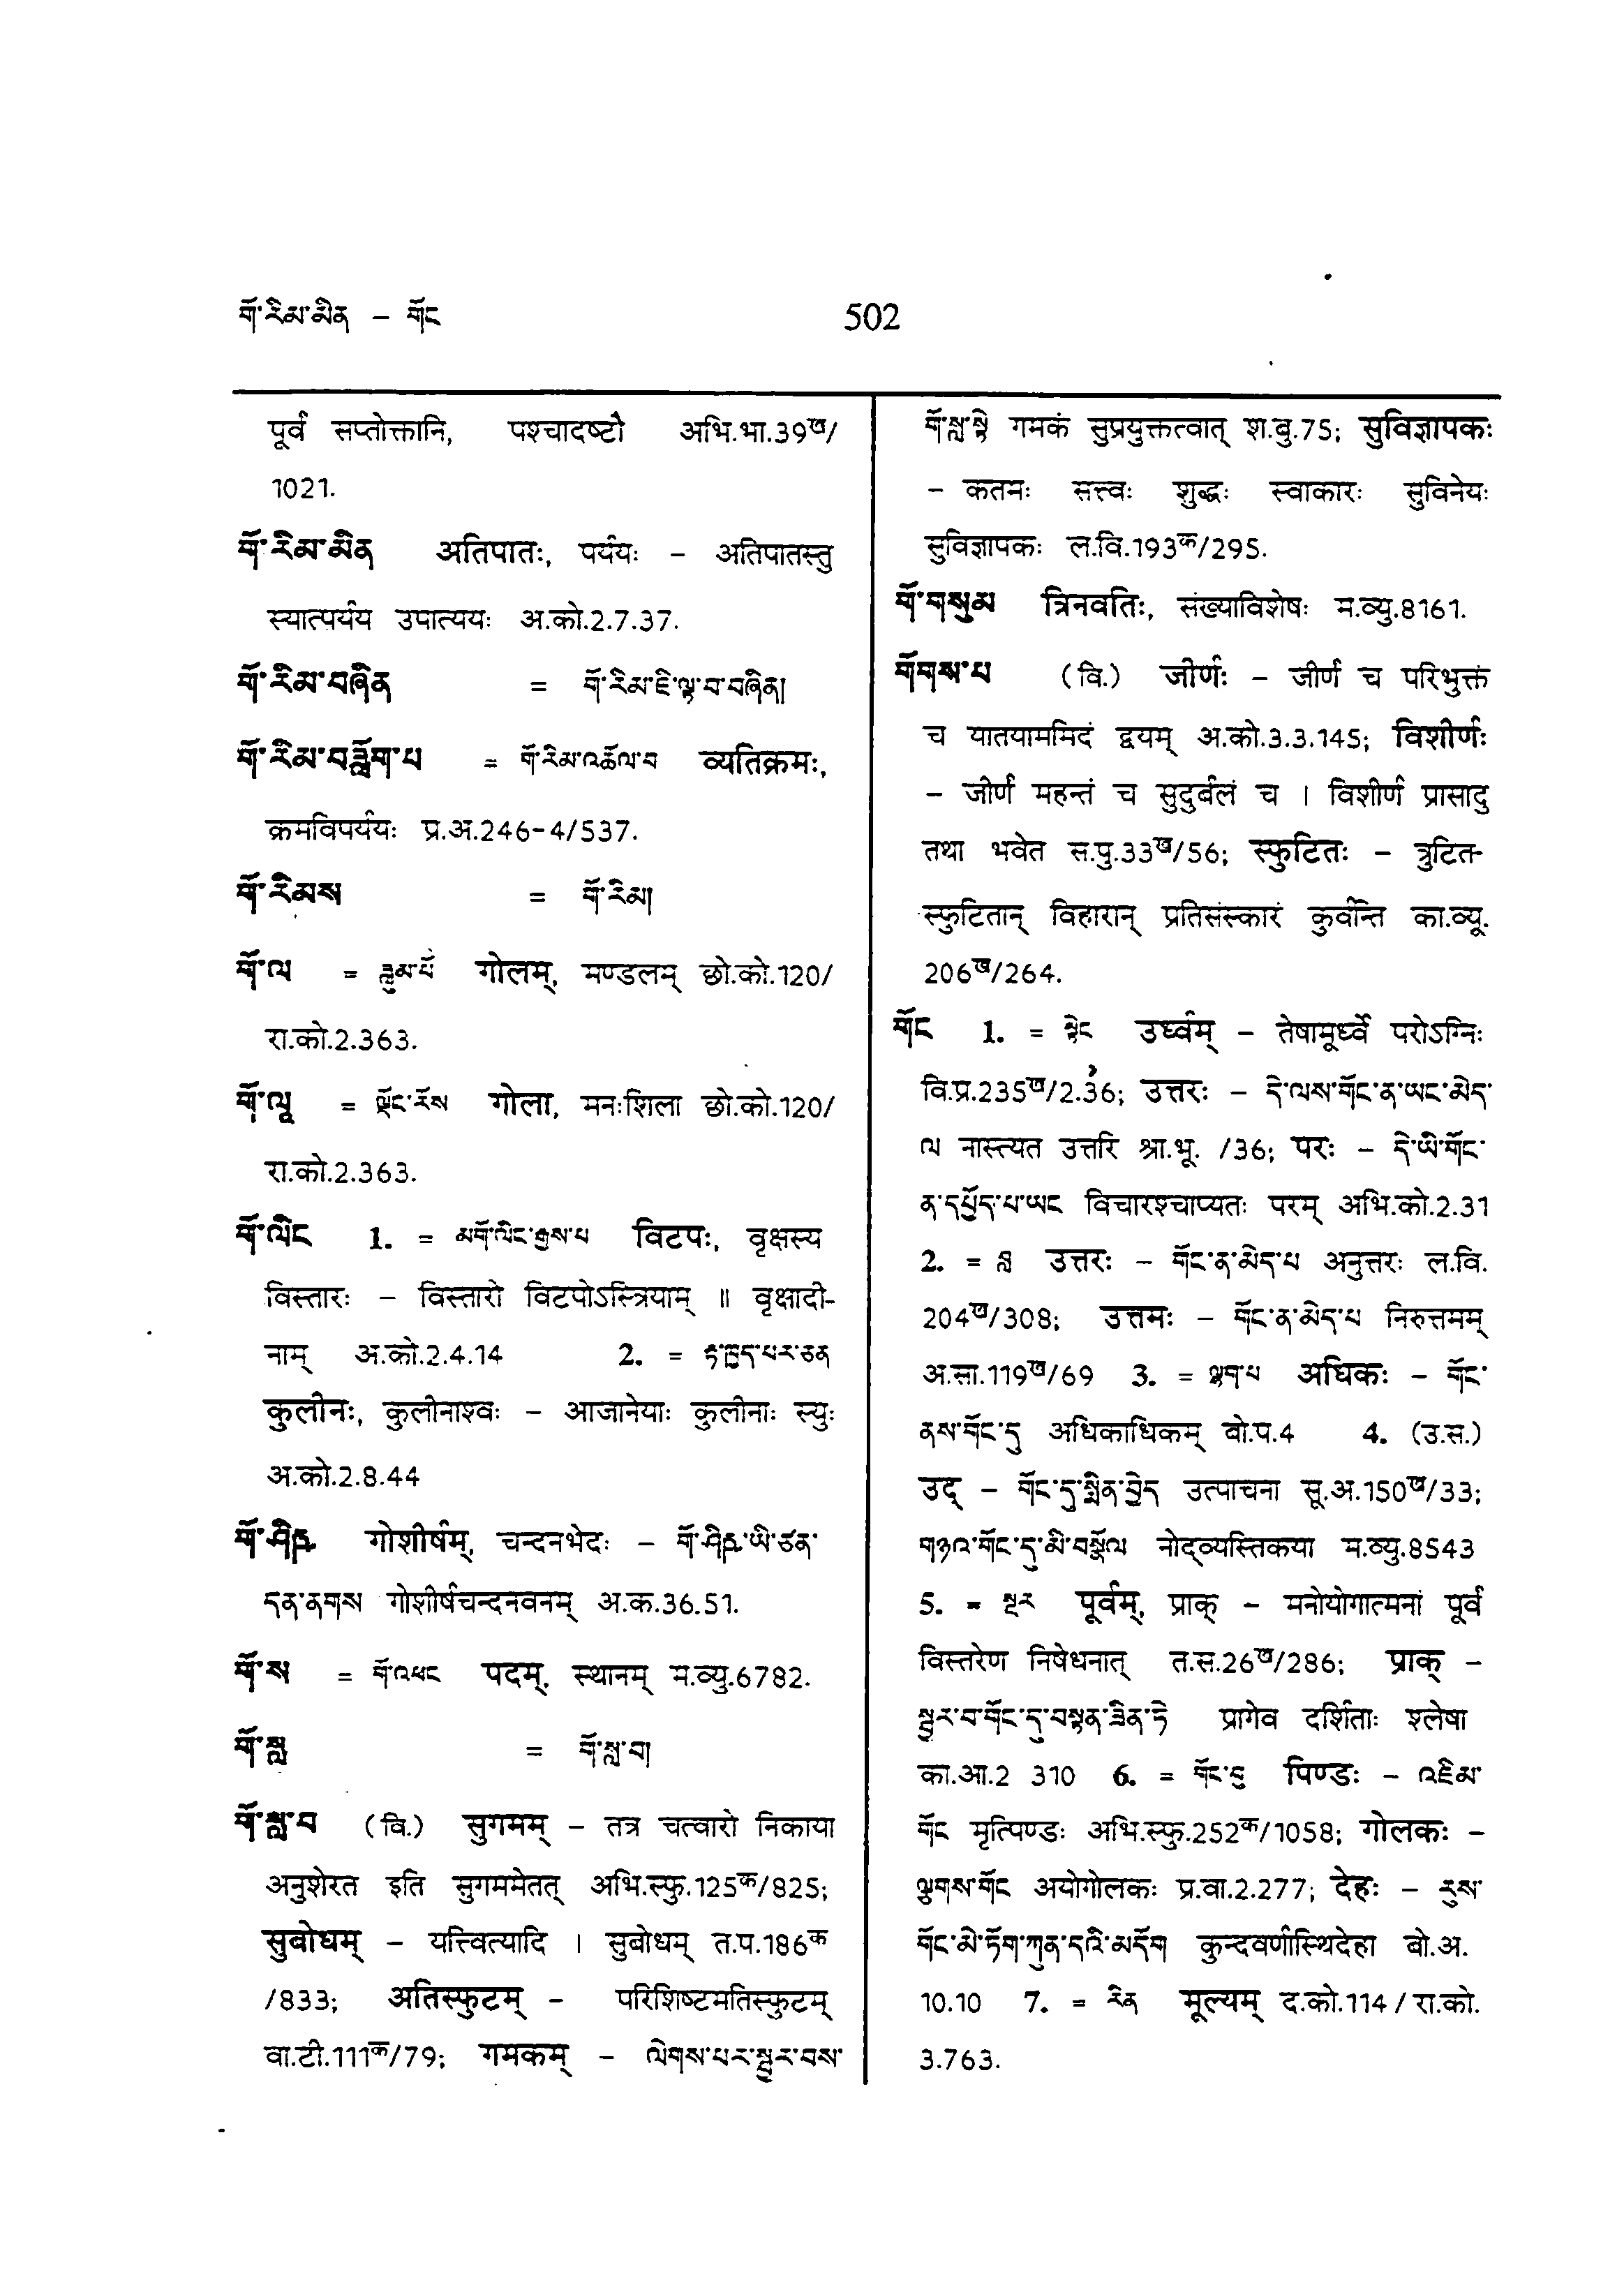 གོ་རིམ་མིན – གོང
502
पूर्वं सप्तोक्तानि, पश्चादष्टौ अभि.भा.39ख/
1021.
གོ་རིམ་མིན अतिपातः, पर्ययः – अतिपातस्तु
स्यात्पर्यय उपात्ययः अ.को.2.7.37.
གོ་རིམ་བཞིན = གོ་རིམ་ཇི་ལྟ་བ་བཞིན།
གོ་རིམ་བཟློག་པ = གོ་རིམ་འཆོལ་བ व्यतिक्रमः,
क्रमविपर्ययः प्र.अ.246-4/537.
གོ་རིམས = གོ་རིམ།
གོ་ལ = ཟླུམ་པོ गोलम्, मण्डलम् छो.को.120/
रा.को.2.363.
གོ་ལཱ = ལྡོང་རོས गोला, मनःशिला छो.को.120/
रा.को.2.363.
གོ་ལིང 1. = མགོ་ལིང་རྒྱས་པ विटपः, वृक्षस्य
विस्तारः – विस्तारो विटपोऽस्त्रियाम् ॥ वृक्षादी-
नाम् अ.को.2.4.14 2. = ཏ་ཁྱད་པར་ཅན
कुलीनः, कुलीनाश्वः – आजानेयाः कुलीनाः स्युः
अ.को.2.8.44
གོ་ཤིརྵ गोशीर्षम्, चन्दनभेदः – གོ་ཤིརྵ་ཡི་ཙན་
དན་ནགས गोशीर्षचन्दनवनम् अ.क.36.51.
གོ་ས = གོ་འཕང पदम्, स्थानम् म.व्यु.6782.
གོ་སླ = གོ་སླ་བ།
གོ་སླ་བ (वि.) सुगमम् – तत्र चत्वारो निकाया
अनुशेरत इति सुगममेतत् अभि.स्फु.125क/825;
सुबोधम् – यत्त्वित्यादि । सुबोधम् त.प.186क
/833; अतिस्फुटम् – परिशिष्टमतिस्फुटम्
वा.टी.111क/79; गमकम् – ལེགས་པར་སྦྱར་བས་
གོ་སླ་སྟེ गमकं सुप्रयुक्तत्वात् श.बु.75; सुविज्ञापकः
– कतमः सत्त्वः शुद्धः स्वाकारः सुविनेयः
सुविज्ञापकः ल.वि.193क/295.
གོ་གསུམ त्रिनवतिः, संख्याविशेषः म.व्यु.8161.
གོགས་པ (वि.) जीर्णः – जीर्णं च परिभुक्तं
च यातयाममिदं द्वयम् अ.को.3.3.145; विशीर्णः
– जीर्णं महन्तं च सुदुर्बलं च । विशीर्ण प्रासादु
तथा भवेत स.पु.33ख/56; स्फुटितः – त्रुटित-
स्फुटितान् विहारान् प्रतिसंस्कारं कुर्वन्ति का.व्यू.
206ख/264.
གོང 1. = སྟེང उर्ध्वम् – तेषामूर्ध्वे परोऽग्निः
वि.प्र.235ख/2.36; उत्तरः – དེ་ལས་གོང་ན་ཡང་མེད་
ལ नास्त्यत उत्तरि श्रा.भू. /36; परः – དེ་ཡི་གོང་
ན་དཔྱོད་པ་ཡང विचारश्चाप्यतः परम् अभि.को.2.31
2. = བླ उत्तरः – གོང་ན་མེད་པ अनुत्तरः ल.वि.
204ख/308; उत्तमः – གོང་ན་མེད་པ निरुत्तमम्
अ.सा.119ख/69 3. = ལྷག་པ अधिकः – གོང་
ནས་གོང་དུ अधिकाधिकम् बो.प.4 4. (उ.स.)
उद् – གོང་དུ་སྨིན་བྱེད उत्पाचना सू.अ.150ख/33;
གཉའ་གོང་དུ་མི་བསྣོལ नोद्व्यस्तिकया म.व्यु.8543
5. = སྔར पूर्वम्, प्राक् – मनोयोगात्मनां पूर्वं
विस्तरेण निषेधनात् त.स.26ख/286; प्राक् –
སྦྱར་བ་གོང་དུ་བསྟན་ཟིན་ཏེ प्रागेव दर्शिताः श्लेषा
का.आ.2 310 6. = གོང་བུ पिण्डः – འཇིམ་
གོང मृत्पिण्डः अभि.स्फु.252क/1058; गोलकः –
ལྕགས་གོང अयोगोलकः प्र.वा.2.277; देहः – རུས་
གོང་མེ་ཏོག་ཀུན་དའི་མདོག कुन्दवर्णास्थिदेहा बो.अ.
10.10 7. = རིན मूल्यम् द.को.114/रा.को.
3.763.